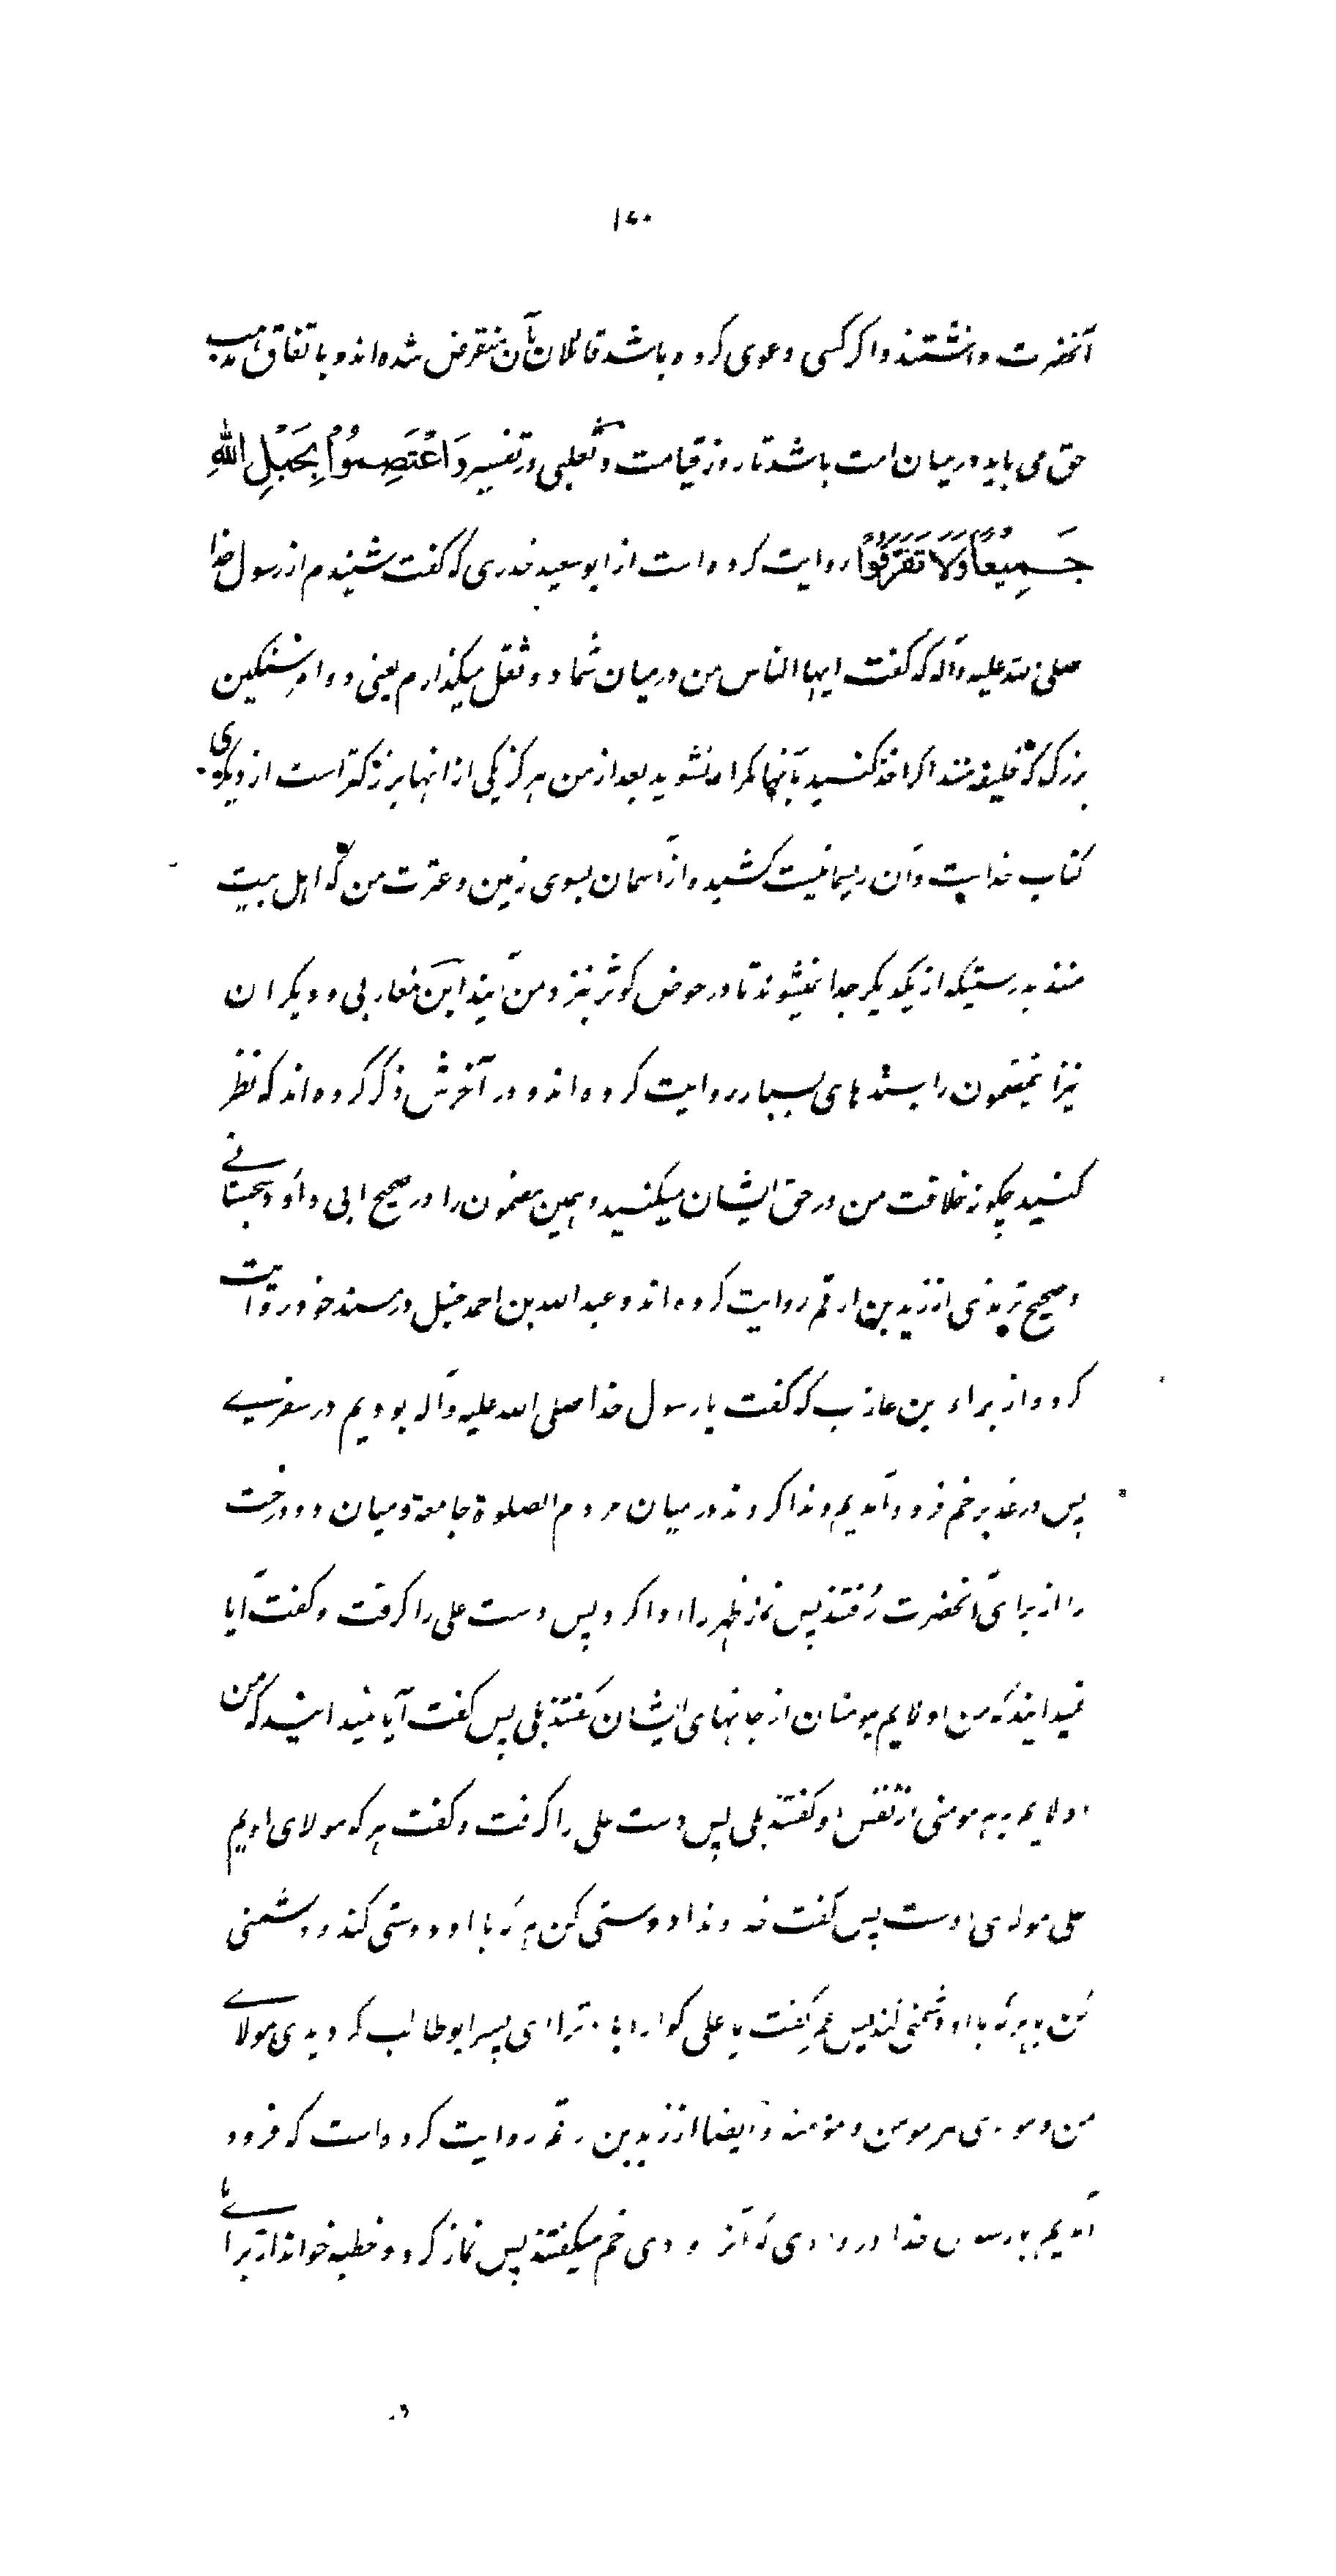 ۱۶۰
آنحضرت دانشتند و اکر کسی دعوی کرده باشد قائلان بآن منقرض شده‌اند و باتفاق مذهب
حق می باید در میان امت باشد تا روز قیامت و ثعلبی در تفسیر وَاعْتَصِمُوا بِحَبْلِ اللهِ
جَمِيعًا وَلَا تَفَرَّقُوا روایت کرده است از ابو سعید خدری که کفت شنیدم از رسول خدا
صلی الله علیه وآله که کفت ایها الناس من در میان شما دو ثقل میکذارم یعنی دو امر سنکین
بزرک که خلیفه منند اکر اخذ کنید بآنها کمراه نشوید بعد از من هر کز یکی از انها بزرکتر است از دیکری
کتاب خداست و آن ریسمانیست کشیده از آسمان بسوی زمین و عترت من که اهل بیت
منند بدرستیکه از یکدیکر جدا نمیشوند تا در حوض کوثر بنزد من آیند ابن مغازلی و دیکران
نیز اینمضمون را بسندهای بسیار روایت کرده‌اند و در آخرش ذکر کرده‌اند که نظر
کنید چکونه خلافت من در حق ایشان میکنید و همین مضمون را در صحیح ابی داود سجستانے
و صحیح ترمذی از زید بن ارقم روایت کرده‌اند و عبدالله بن احمد حنبل در مسند خود روایت
کرده از براء بن عازب که کفت با رسول خدا صلی الله علیه وآله بودیم در سفریے
پس در غدیر خم فرود آمدیم و ندا کردند در میان مردم الصلوة جامعة و میان دو درخت
را از برای آنحضرت رُفتند پس نماز ظهر را ادا کرد پس دست علی را کرفت و کفت آیا
نمیدانید که من اولایم بمومنان از جانهای ایشان کفتند بلی پس کفت آیا نمیدانید که من
اولایم بهر مومنی از نفس او کفتند بلی پس دست علی را کرفت و کفت هر که مولای اویم
علی مولای اوست پس کفت خداوندا دوستی کن هر که با او دوستی کند و دشمنی
کن با هر که با او دشمنی کند پس عمر کفت یا علی کوارا باد ترا ای پسر ابو طالب کردیدی مولاے
من و مولای هر مومن و مؤمنه و ایضا از زید بن ارقم روایت کرده است که فرود
آمدیم با رسول خدا در وادی که آنرا وادی خم میکفتند پس نماز کرد و خطبه خواند از براے ما